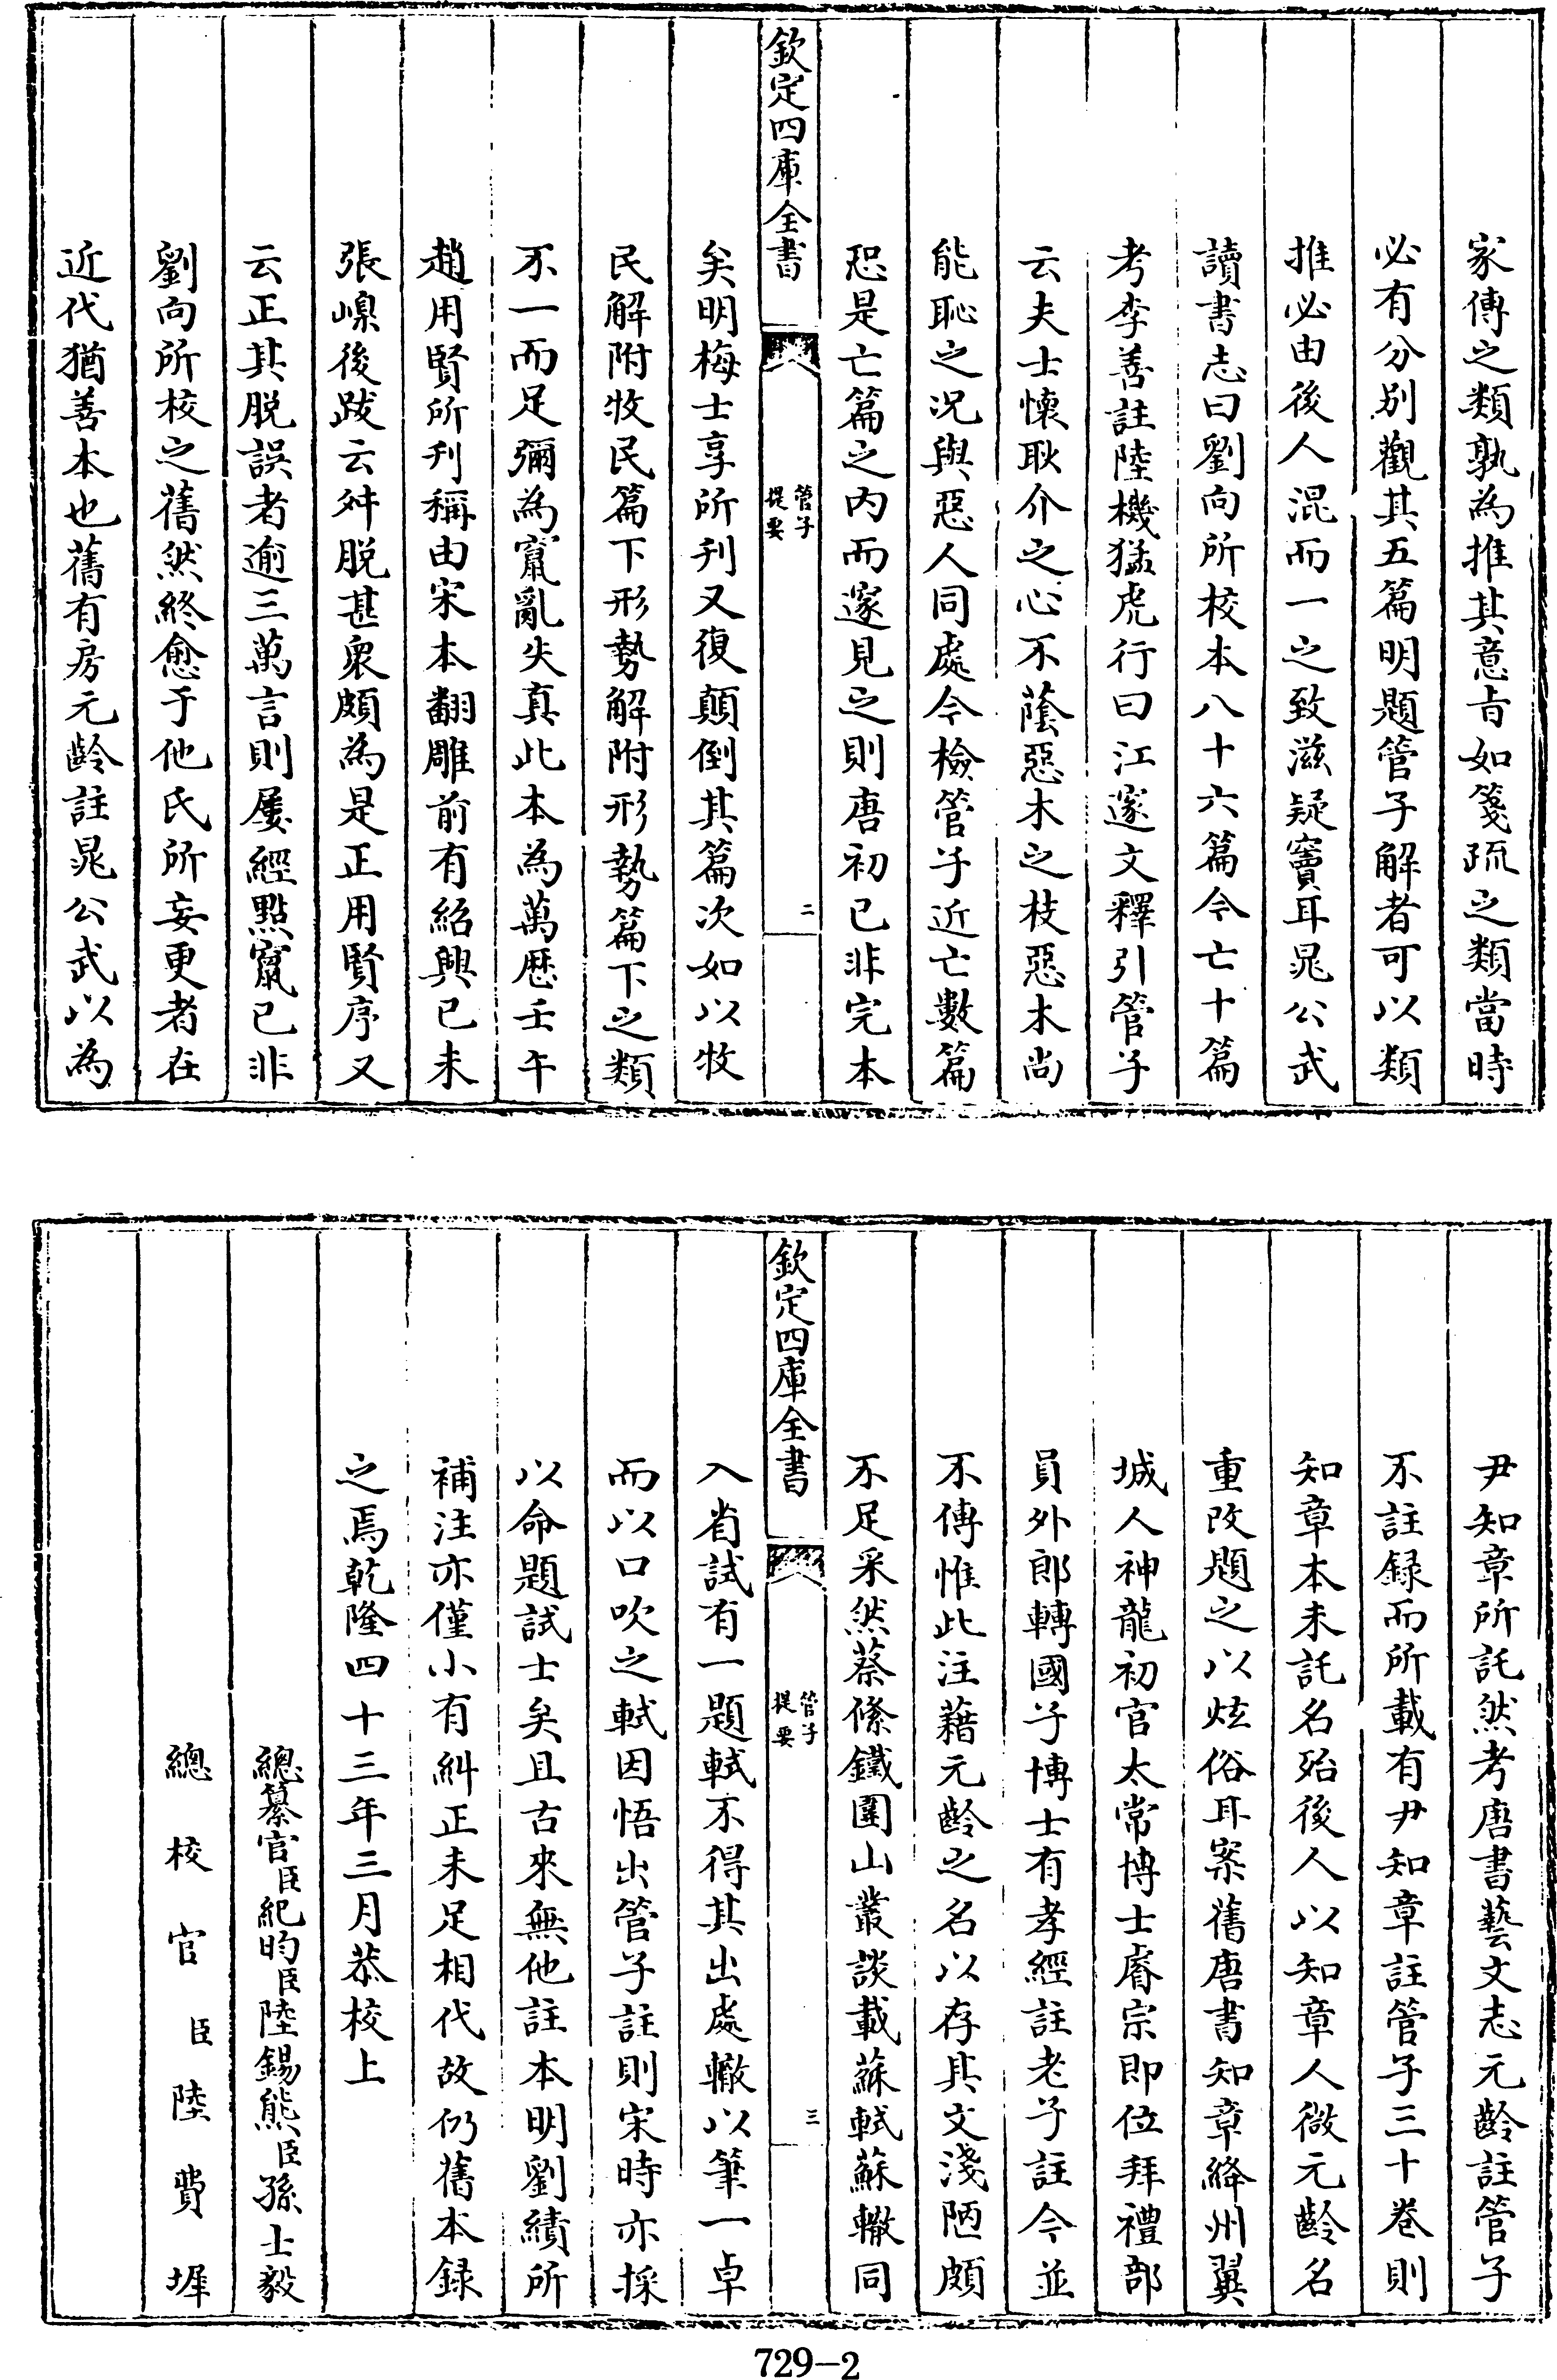 家傳之類孰為推其意㫖如箋疏之類當時
必有分別觀其五篇明題管子解者可以類
推必由後人混而一之致滋疑竇耳晁公武
讀書志曰劉向所校本八十六篇今亡十篇
考李善註陸機猛虎行曰江邃文釋引管子
云夫士懷耿介之心不蔭惡木之枝惡木尚
能恥之况與惡人同處今檢管子近亡數篇
恐是亡篇之内而邃見之則唐初已非完本
欽定四庫全書
管子
提要
二
矣明梅士享所刋又復顛倒其篇次如以牧
民解附牧民篇下形勢解附形勢篇下之類
不一而足彌為竄亂失真此本為萬厯壬午
趙用賢所刋稱由宋本翻雕前有紹興已未
張嵲後跋云舛脱甚衆頗為是正用賢序又
云正其脱誤者逾三萬言則屢經點竄已非
劉向所校之舊然終愈于他氏所妄更者在
近代猶善本也舊有房元齡註晁公武以為
尹知章所託然考唐書藝文志元齡註管子
不註録而所載有尹知章註管子三十卷則
知章本未託名殆後人以知章人微元齡名
重改題之以炫俗耳案舊唐書知章絳州翼
城人神龍初官太常博士睿宗即位拜禮部
員外郎轉國子博士有孝經註老子註今並
不傳惟此注藉元齡之名以存其文淺陋頗
不足采然蔡絛鐵圍山叢談載蘇軾蘇轍同
欽定四庫全書
管子
提要
三
入省試有一題軾不得其出處轍以筆一卓
而以口吹之軾因悟出管子註則宋時亦採
以命題試士矣且古來無他註本明劉績所
補注亦僅小有糾正未足相代故仍舊本録
之焉乾隆四十三年三月恭校上
總纂官臣紀昀臣陸錫熊臣孫士毅
總校官臣陸費墀
729-2